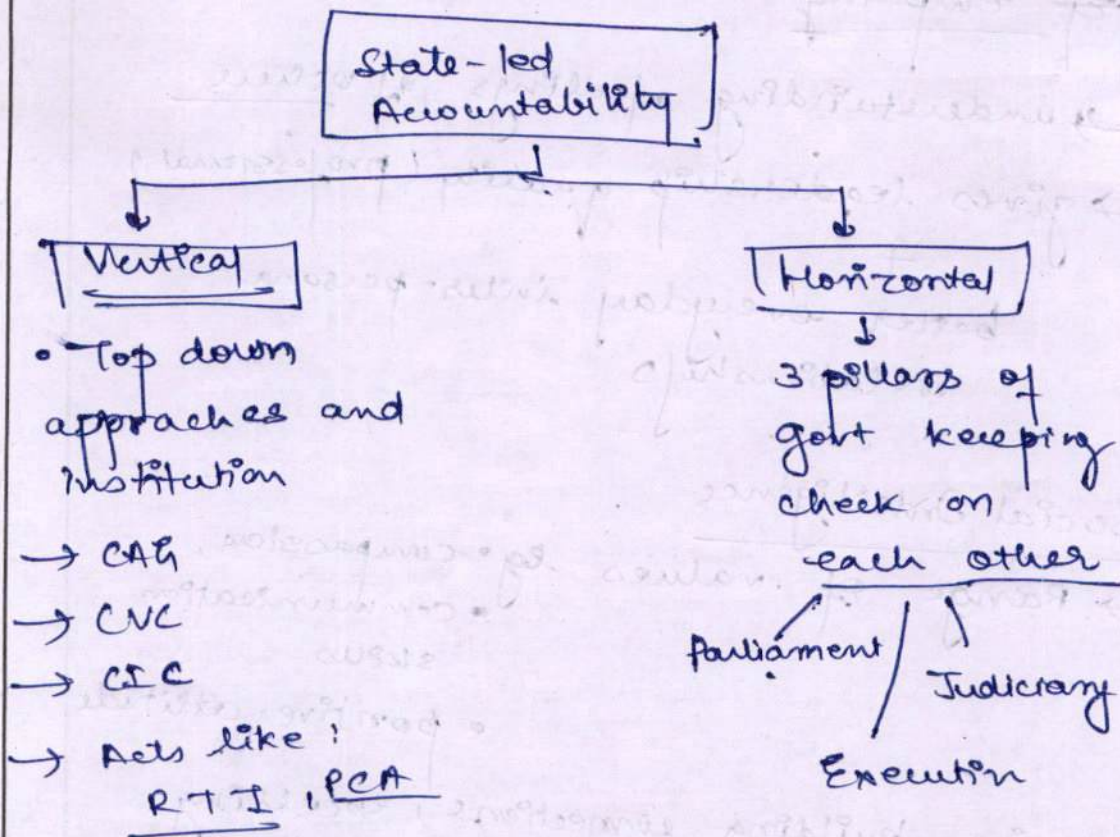 State-led
Accountability
Vertical
• Top down
approaches and
institution
→ CAG
→ CVC
→ CIC
→ Acts like :
RTI , PCA
Horizontal
3 pillars of
govt keeping
check on
each other
Parliament
Judiciary
Executive